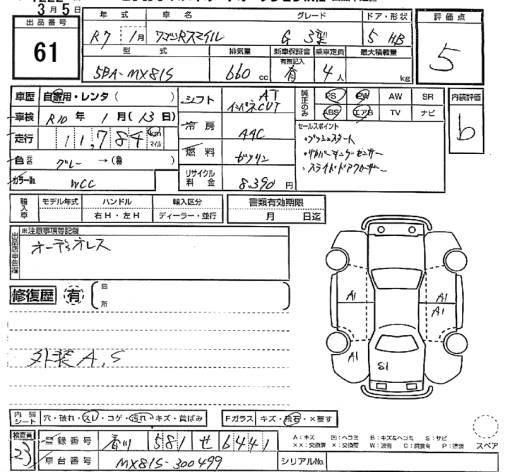 3月5日
出品番号
61
年式 車名 グレード ドア・形状
R7 1月 ワゴンRスマイル G 3型 5 HB
型式 排気量 新車保証書 乗車定員 最大積載量
有無記入
5BA-MX81S 660cc 有 4人 kg
評価点
5
車歴 自家用・レンタ( )
車検 R10年1月(13日)
走行 11,784 km マイル
色 グレー→( 色)
カラーNo. WCC
シフト AT インパネCVT
冷房 AAC
燃料 ガソリン
リサイクル料金 8,390円
純正のみ PS PW AW SR
ABS エアB TV ナビ
セールスポイント
・プッシュスタート
・スライドドアクローザー
内装評価
b
輸入車 モデル年式 ハンドル 輸入区分
右H・左H ディーラー・並行
書類有効期限
月 日迄
※注意事項等記載
オーディオレス
修復歴 有
箇所
外装A,S
A1
A1
A1
A1
S1
内張シート 穴・破れ・ヨレ・コゲ・汚れ・キズ・黄ばみ
Fガラス キズ・飛石・×要す
検査員
23
登録番号 香川 581 せ 6441
車台番号 MX81S-300499
シリアルNo.
A:キズ U:ヘコミ B:キズ&ヘコミ S:サビ
XX:交換済 X:交換要 W:波有 C:腐食有 P:塗装
スペア